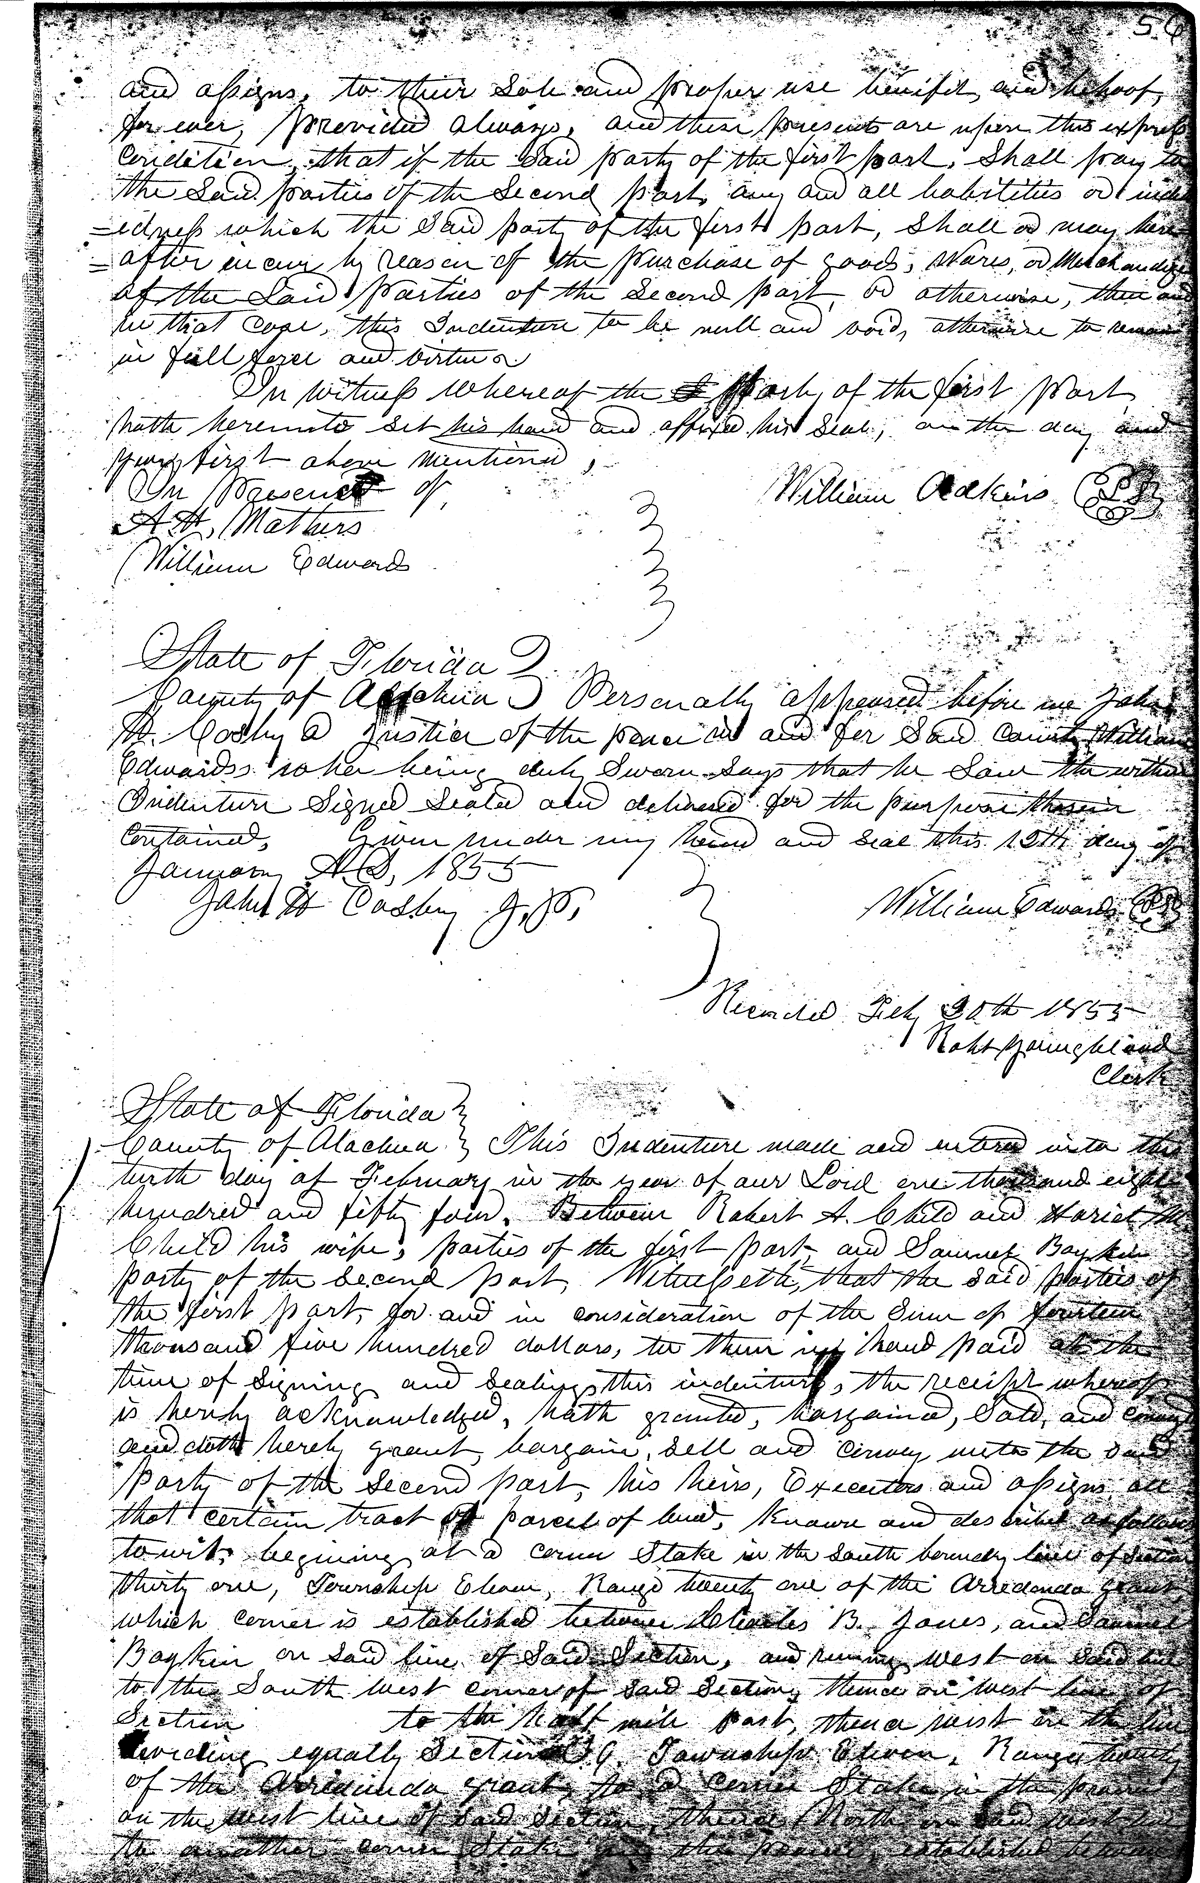 56
and assigns, to their Sole and proper use benifit, and behoof,
for ever, provided always, and these presents are upon this express
condition, that if the Said party of the first part, Shall pay to
the Said parties of the Second part, any and all liabilities or indebt
=edness which the Said party of the first part, Shall or may here
=after incur by reason of the Purchase of goods, Wares, or Merchandize
of the Said Parties of the Second part, or otherwise, then and
in that case, this Indenture to be null and void, otherwise to remain
in full force and virtue
In witness Whereof the Party of the first Part,
hath hereunto set his hand and affixed his Seal, on the day and
year first above mentioned,
In Presence of
William Adkins
A. H. Mathers
William Edwards
State of Florida
County of Alachua Personally appeared before me John
H. Cosby a Justice of the peace in and for Said County William
Edwardss who being duly Sworn Says that he Saw the within
Indenture Signed Sealed and delivered for the purpose therein
contained, Given under my hand and seal this 12th day of
January A.D, 1855
John H Cosby J.P.
William Edwards
Recorded Feby 20th 1855
Robt Youngblood
Clerk
State of Florida
County of Alachua This Indenture made and entered into this
tenth day of February in the year of our Lord one thousand eight
hundred and fifty four, Between Robert A. Child and Hariet M
Child his wife, parties of the first part, and Samuel Boykin
party of the second part, Witnesseth, that the said parties of
the first part, for and in consideration of the Sum of fourteen
thousand five hundred dollars, to them in hand paid at the
time of Signing and Sealing this indenture, the receipt whereof
is hereby acknowledged, hath granted, bargained, Sold, and convey
and doth hereby grant, bargain, sell and convey unto the said
party of the second part, his heirs, Executors and assigns all
that certain tract or parcel of land, Known and described as follows
to wit, begining at a corner Stake in the South boundry line of Section
thirty one, Township Eleven, Range twenty one of the Arredondo grant
which corner is established between Charles B. Jones, and Samuel
Boykin on Said line of Said Section, and runing west on Said line
to the South west corner of said Section, thence on west line of
Section to the half mile post, thence west on the line
deviding equally Section 36 Township Eleven, Range twenty
of the Arredondo grant, to a corner Stake in the prairie
on the west line of said Section, thence North on said west line
to another corner Stake in the prairie, established between